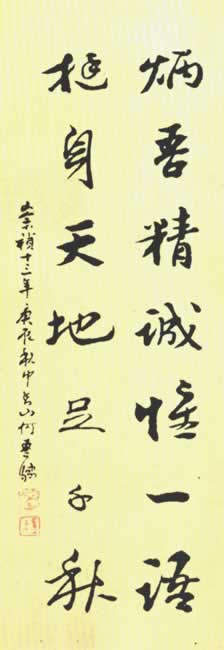 炳吾精诚一语
挺身天地足千秋
崇禎十三年庚辰秋中香山何吾騶